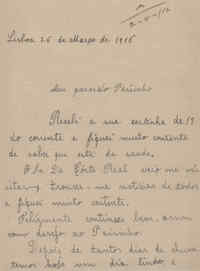 Lisboa 26 de Março de 1916
Meu Paisinho
Recebi a sua cartinha de 19
do corrente e fiquei muito contente
de saber que está de saude.
A Corte Real veio me vi
sitar e trouxe-me noticias de todos
e fiquei muito contente.
Felizmente continuo bem, assim
como desejo ao Paisinho.
Depois de tantos dias de chuva
temos hoje um dia lindo e